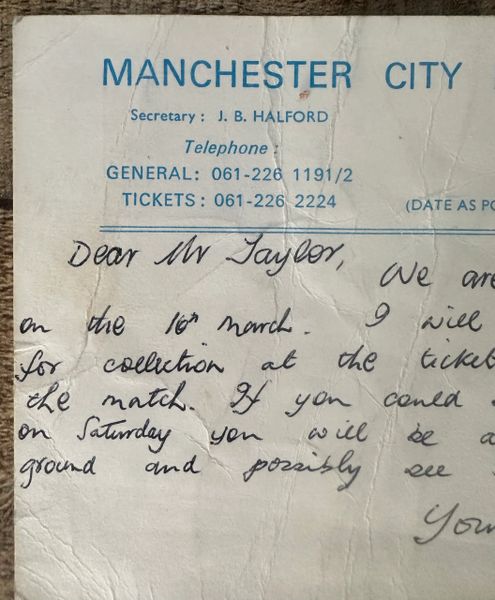 MANCHESTER CITY
Secretary : J. B. HALFORD
Telephone :
GENERAL: 061-226 1191/2
TICKETS : 061-226 2224
(DATE AS PO
Dear Mr Taylor,
We are
on the 16th March. I will
for collection at the ticket
the match. If you could
on Saturday you will be a
ground and possibly see
Your